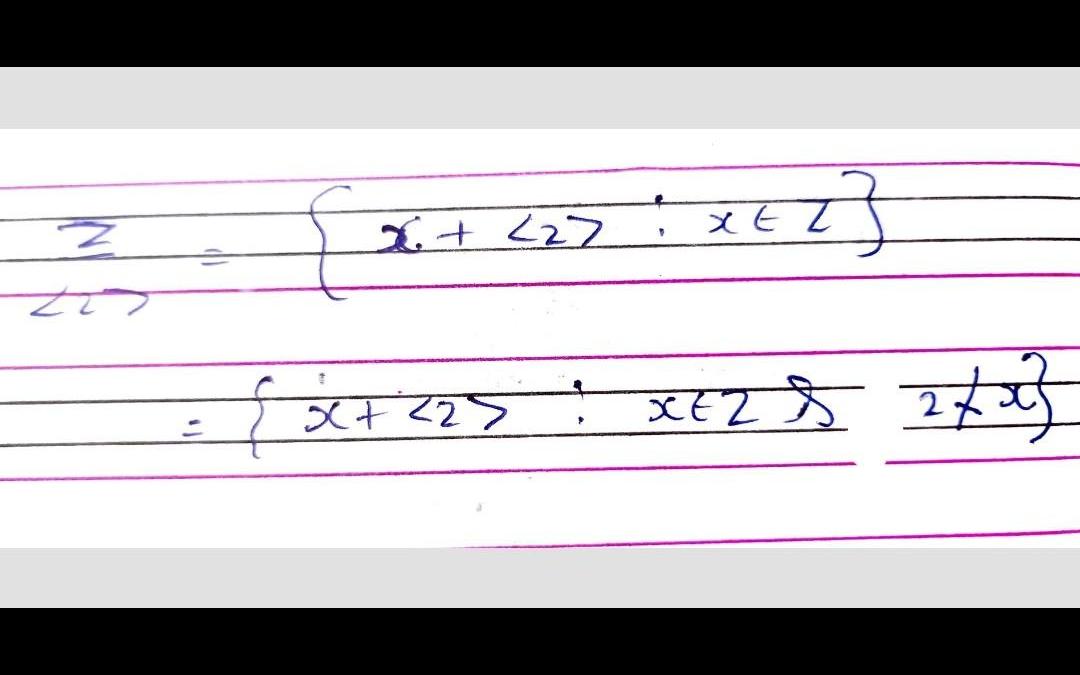 Z/<2> = { x + <2> : x ∈ Z }
= { x + <2> : x ∈ Z & 2 ∤ x }